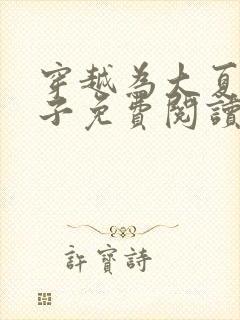 穿越為大夏
子免費閱讀
許寶詩